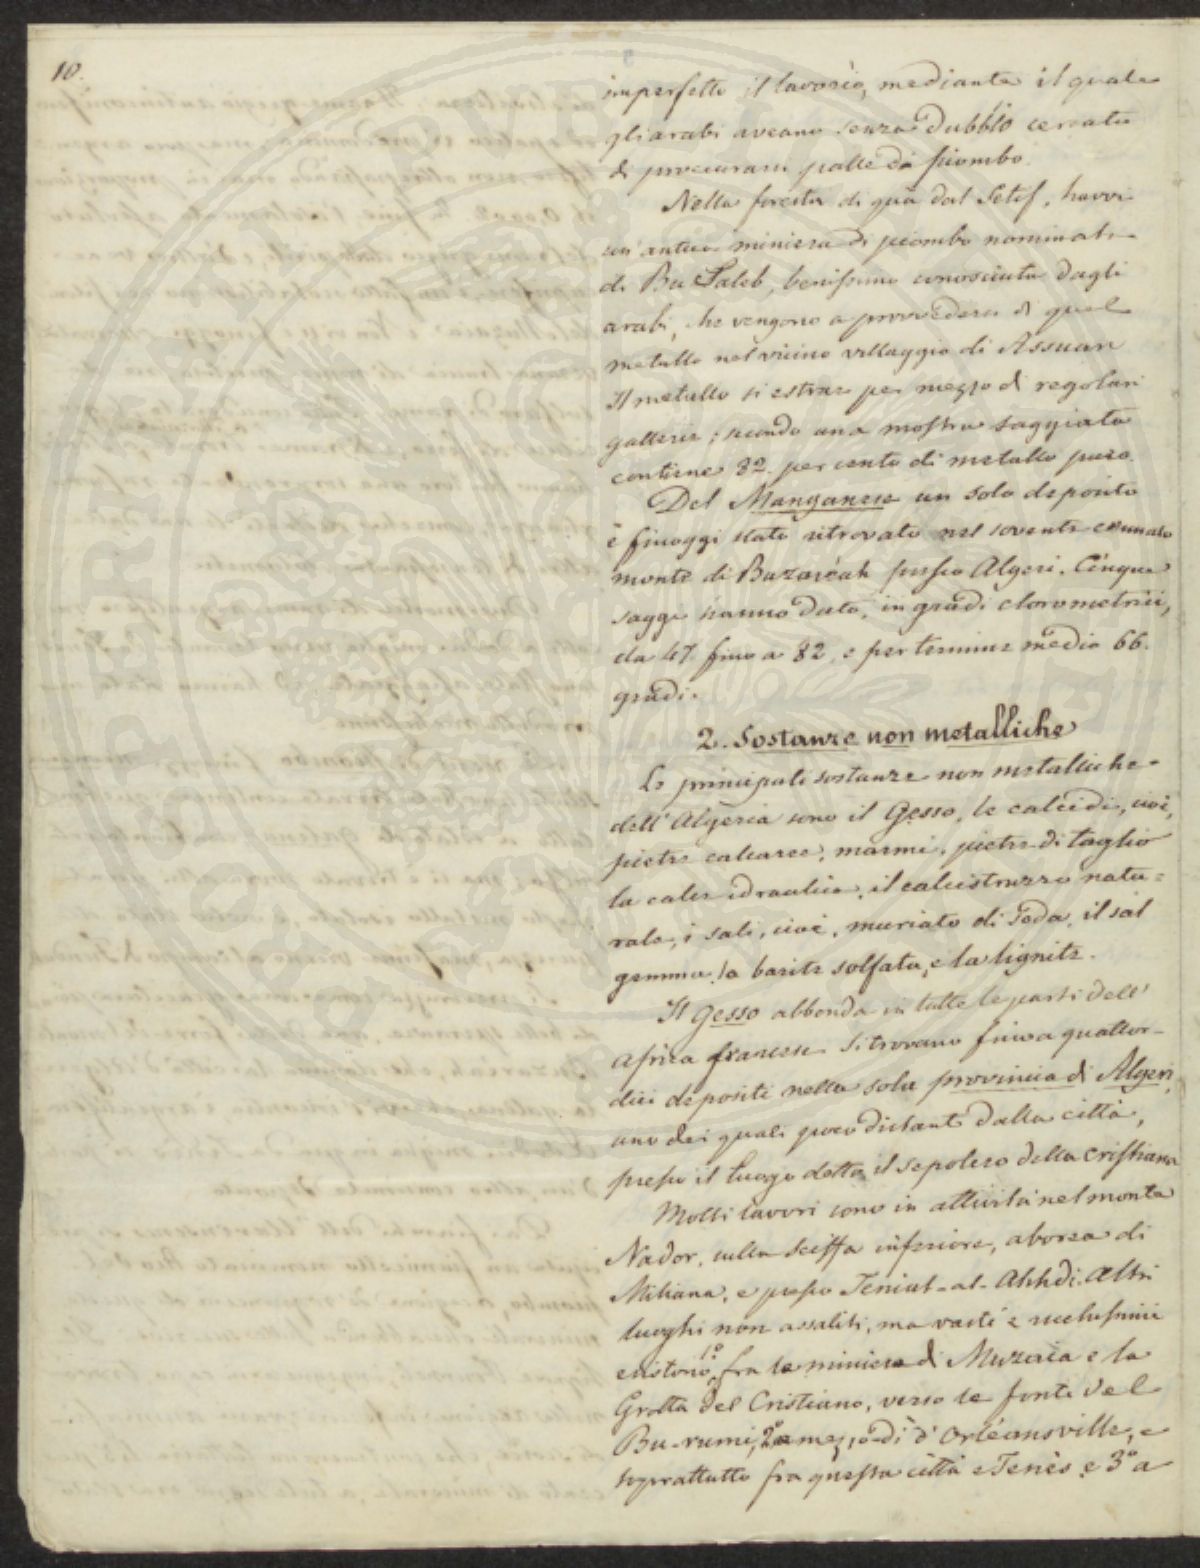 10.
imperfetto il lavorìo, mediante il quale
gli arabi aveano senza dubbio cercato
di procurarsi palle di piombo.
Nella foresta di quà dal Setif, havvi
un' antica miniera di piombo nominata
di Bu Taleb, benissimo conosciuta dagli
arabi, che vengono a provvedersi di quel
metallo nel vicino villaggio di Assuan
Il metallo si estrae per mezzo di regolari
gallerie; secondo una mostra saggiata
contiene 82 per cento di metallo puro.
Del Manganese un solo deposito
è finoggi stato ritrovato nel sovente
monte di Buzaréah presso Algeri. Cinque
saggi hanno dato, in gradi clorometrici,
da 47 fino a 82, e per termine medio 66.
gradi.
2. Sostanze non metalliche
Le principali sostanze non metalliche
dell' Algeria sono il Gesso, le calcidi, cioè,
pietre calcaree, marmi, pietre di taglio
la calce idraulica, il calcistruzzo natu=
rale, i sali, cioè, muriato di soda, il sal
gemma, la barite solfata, e la lignite.
Il Gesso abbonda in tutte le parti dell'
Africa francese. Si trovano fino a quattor-
dici depositi nella sola provincia di Algeri,
uno dei quali poco distante dalla città,
presso il luogo detto il sepolcro della cristiana
Molti lavori sono in attività nel monte
Nador, sulla Sceffa inferiore, a borea di
Miliana, e presso Teniat-al-Ahhdi. Altri
luoghi non assaliti, ma vasti e
esistono, 1° fra le miniere di Muzaia e la
Grotta del Cristiano, verso le fonti del
Bu-rumi, 2° a mezzodì d' Orléansville, e
soprattutto fra questa città e Tenès e 3° a